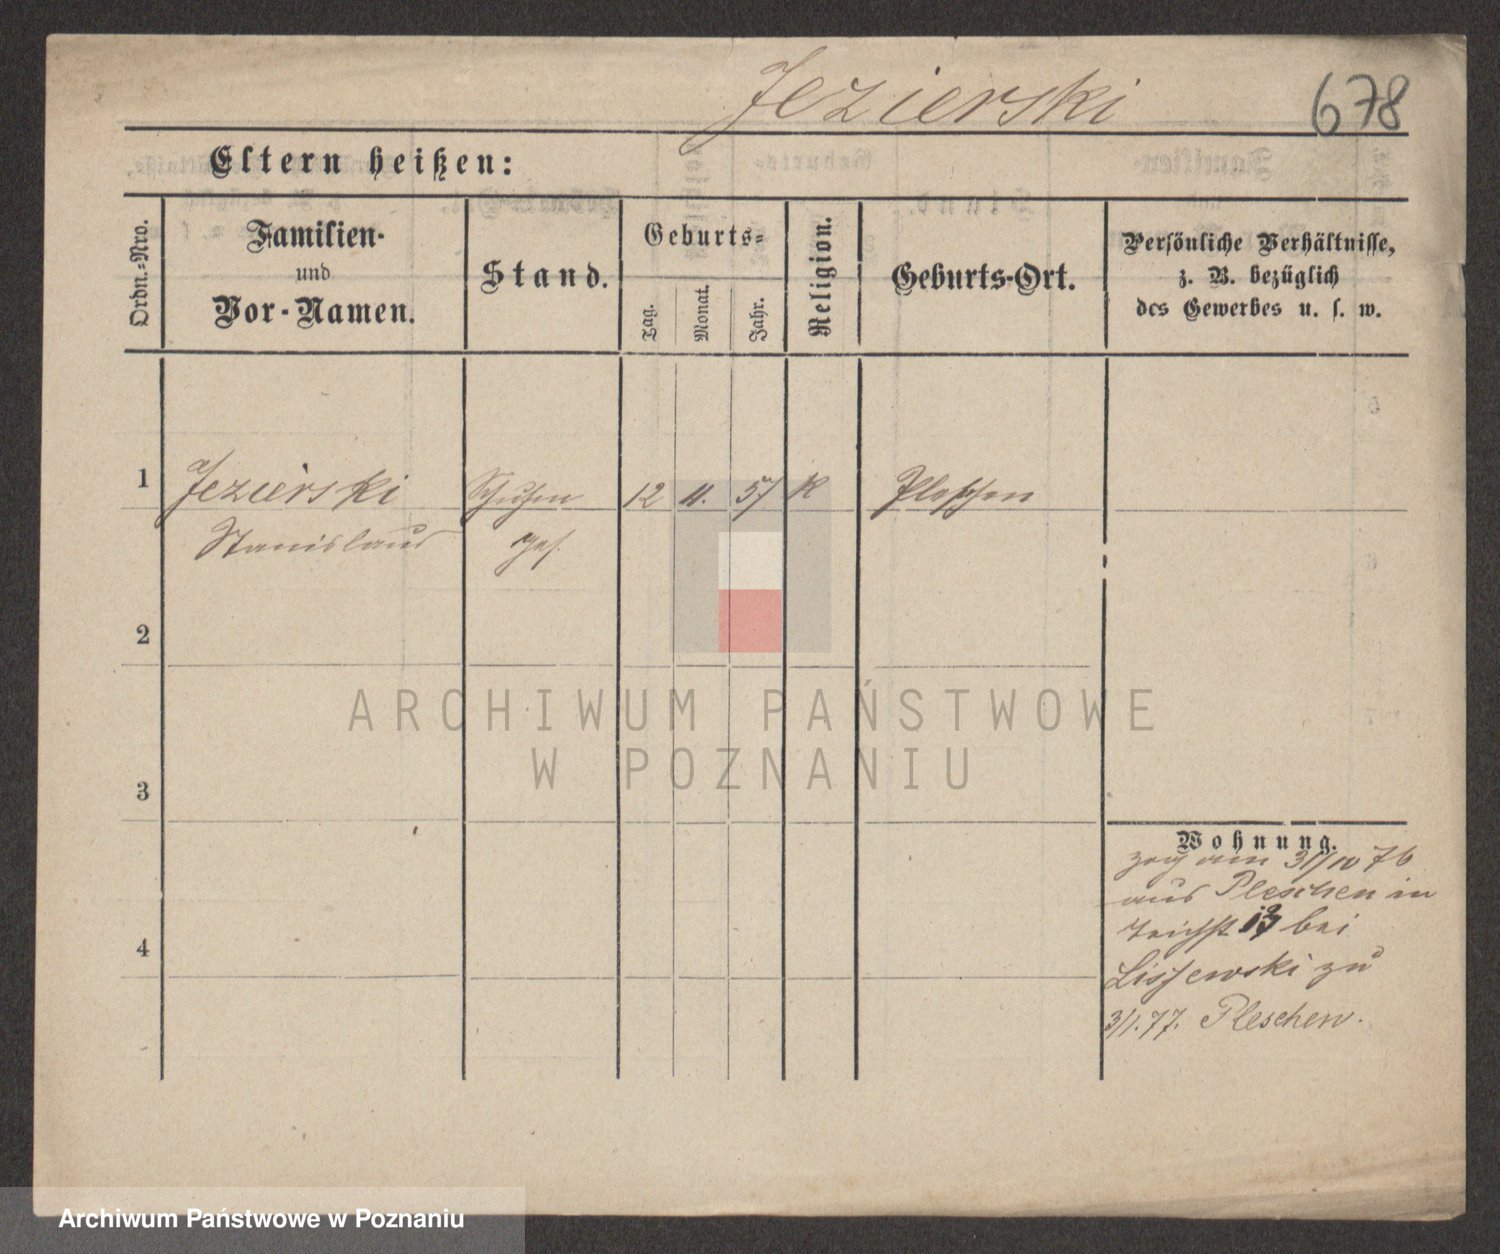 Jezierski 678
Eltern heißen:
Ordn.-Nro.
Familien-
und
Vor-Namen.
Stand.
Geburts-
Tag.
Monat.
Jahr.
Religion.
Geburts-Ort.
Persönliche Verhältnisse,
z. B. bezüglich
des Gewerbes u. s. w.
1 Jezierski 12 11. 57 K Pleschen
Stanislaus ges.
2
3
4
Wohnung.
zog am 31/10 76
aus Pleschen in
bei
Lissewski zu
3/1.77. Pleschen.
ARCHIWUM PAŃSTWOWE
W POZNANIU
Archiwum Państwowe w Poznaniu